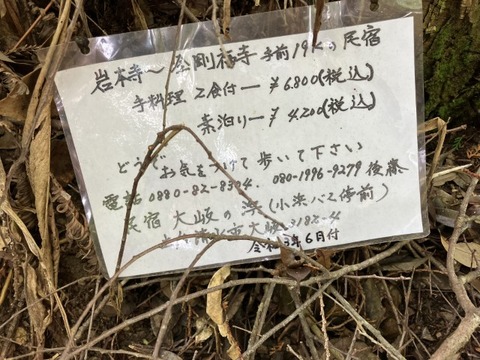 岩本寺〜金剛福寺 手前19Kの民宿
手料理 2食付ー ¥6.800(税込)
素泊りー ¥4.200(税込)
どうぞ お気をつけて 歩いて下さい
電話 0880-82-8304. 080-1996-9279 後藤
民宿 大岐の浜(小浜バス停前)
清水市大岐 3182-4
令和3年6月付